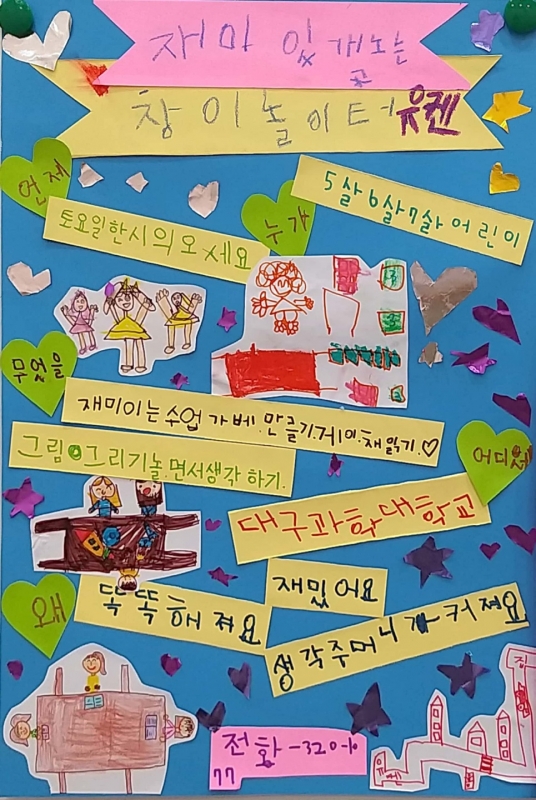 재마 있게노는
곳
창이놀이터유켄
언제
토요일한시의오세요
누가
5살6살7살어린이
무었을
재미이는수업가베.만들기.게이.채읽기.♡
그림그리기놀면서생각하기.
어디서
대구과학대학교
왜
똑똑해져요
재밌어요
생각주머니가커져요
전화-320-10
77
집
유켄